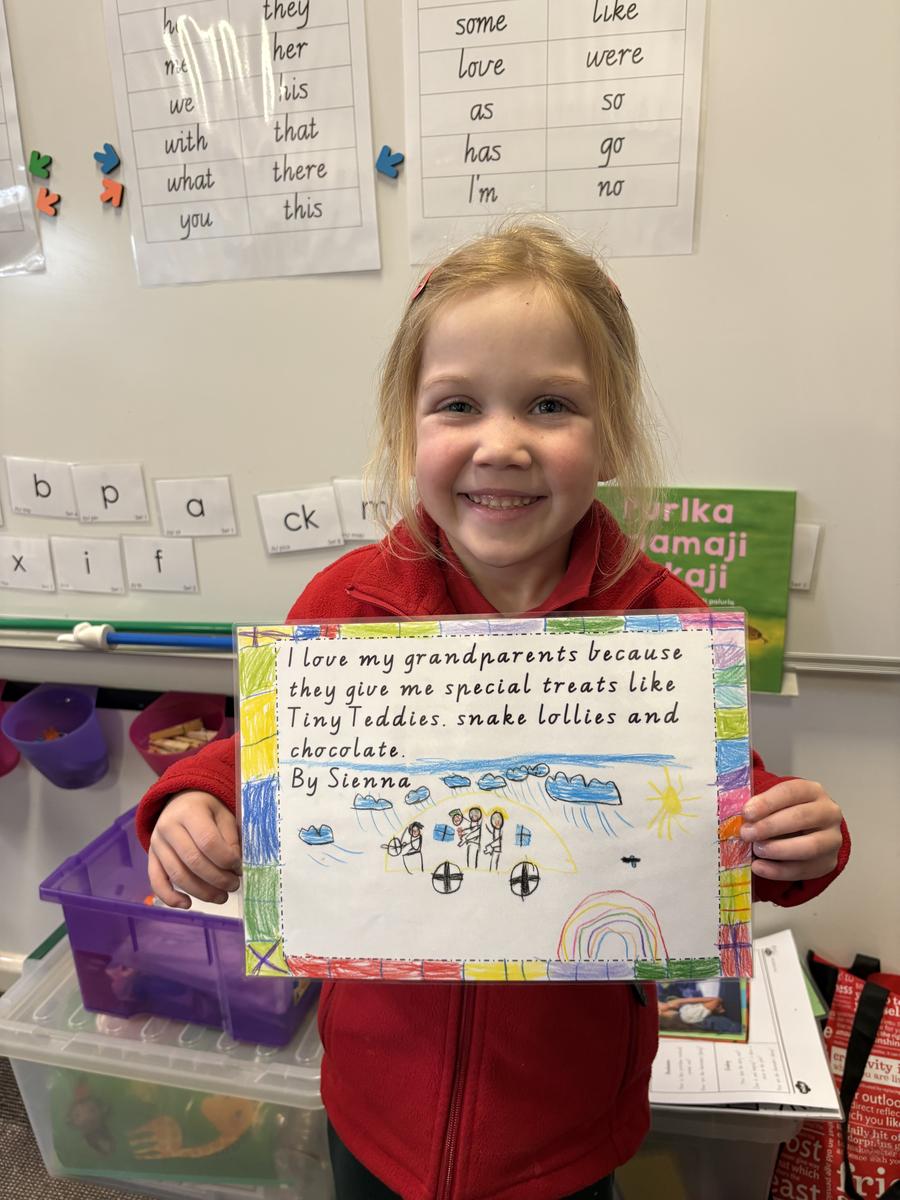 they
me her
we his
with that
what there
you this
some like
love were
as so
has go
I'm no
b p a ck m
x i f
urlka
amaji
kaji
I love my grandparents because
they give me special treats like
Tiny Teddies. snake lollies and
chocolate.
By Sienna